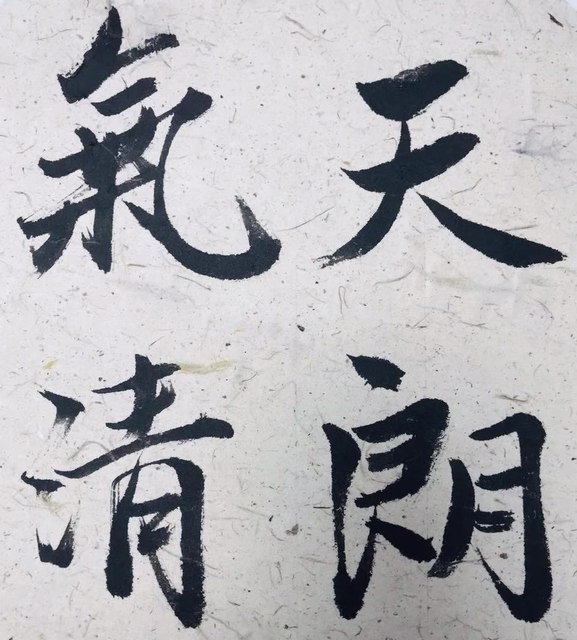 天朗
氣清